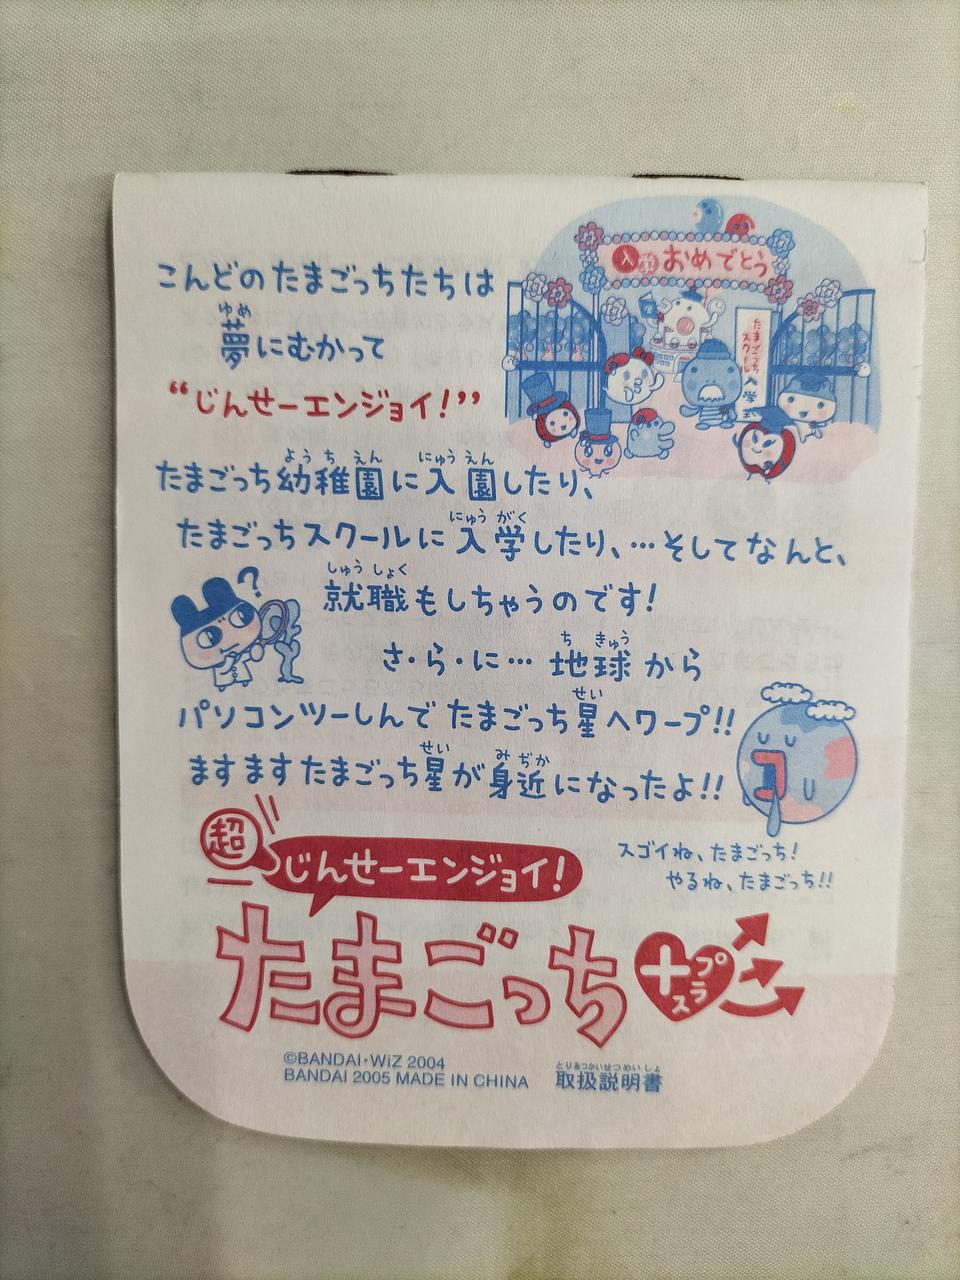 入学おめでとう
たまごっちスクール入学式
こんどのたまごっちたちは
ゆめ
夢にむかって
“じんせーエンジョイ!”
ようちえん にゅうえん
たまごっち幼稚園に入園したり、
にゅうがく
たまごっちスクールに入学したり、…そしてなんと、
しゅうしょく
就職もしちゃうのです!
?
ちきゅう
さ・ら・に… 地球から
せい
パソコンツーしんでたまごっち星へワープ!!
せい みぢか
ますますたまごっち星が身近になったよ!!
スゴイね、たまごっち!
やるね、たまごっち!!
超じんせーエンジョイ!
たまごっち+プラス
©BANDAI・WiZ 2004
BANDAI 2005 MADE IN CHINA
とりあつかいせつめいしょ
取扱説明書